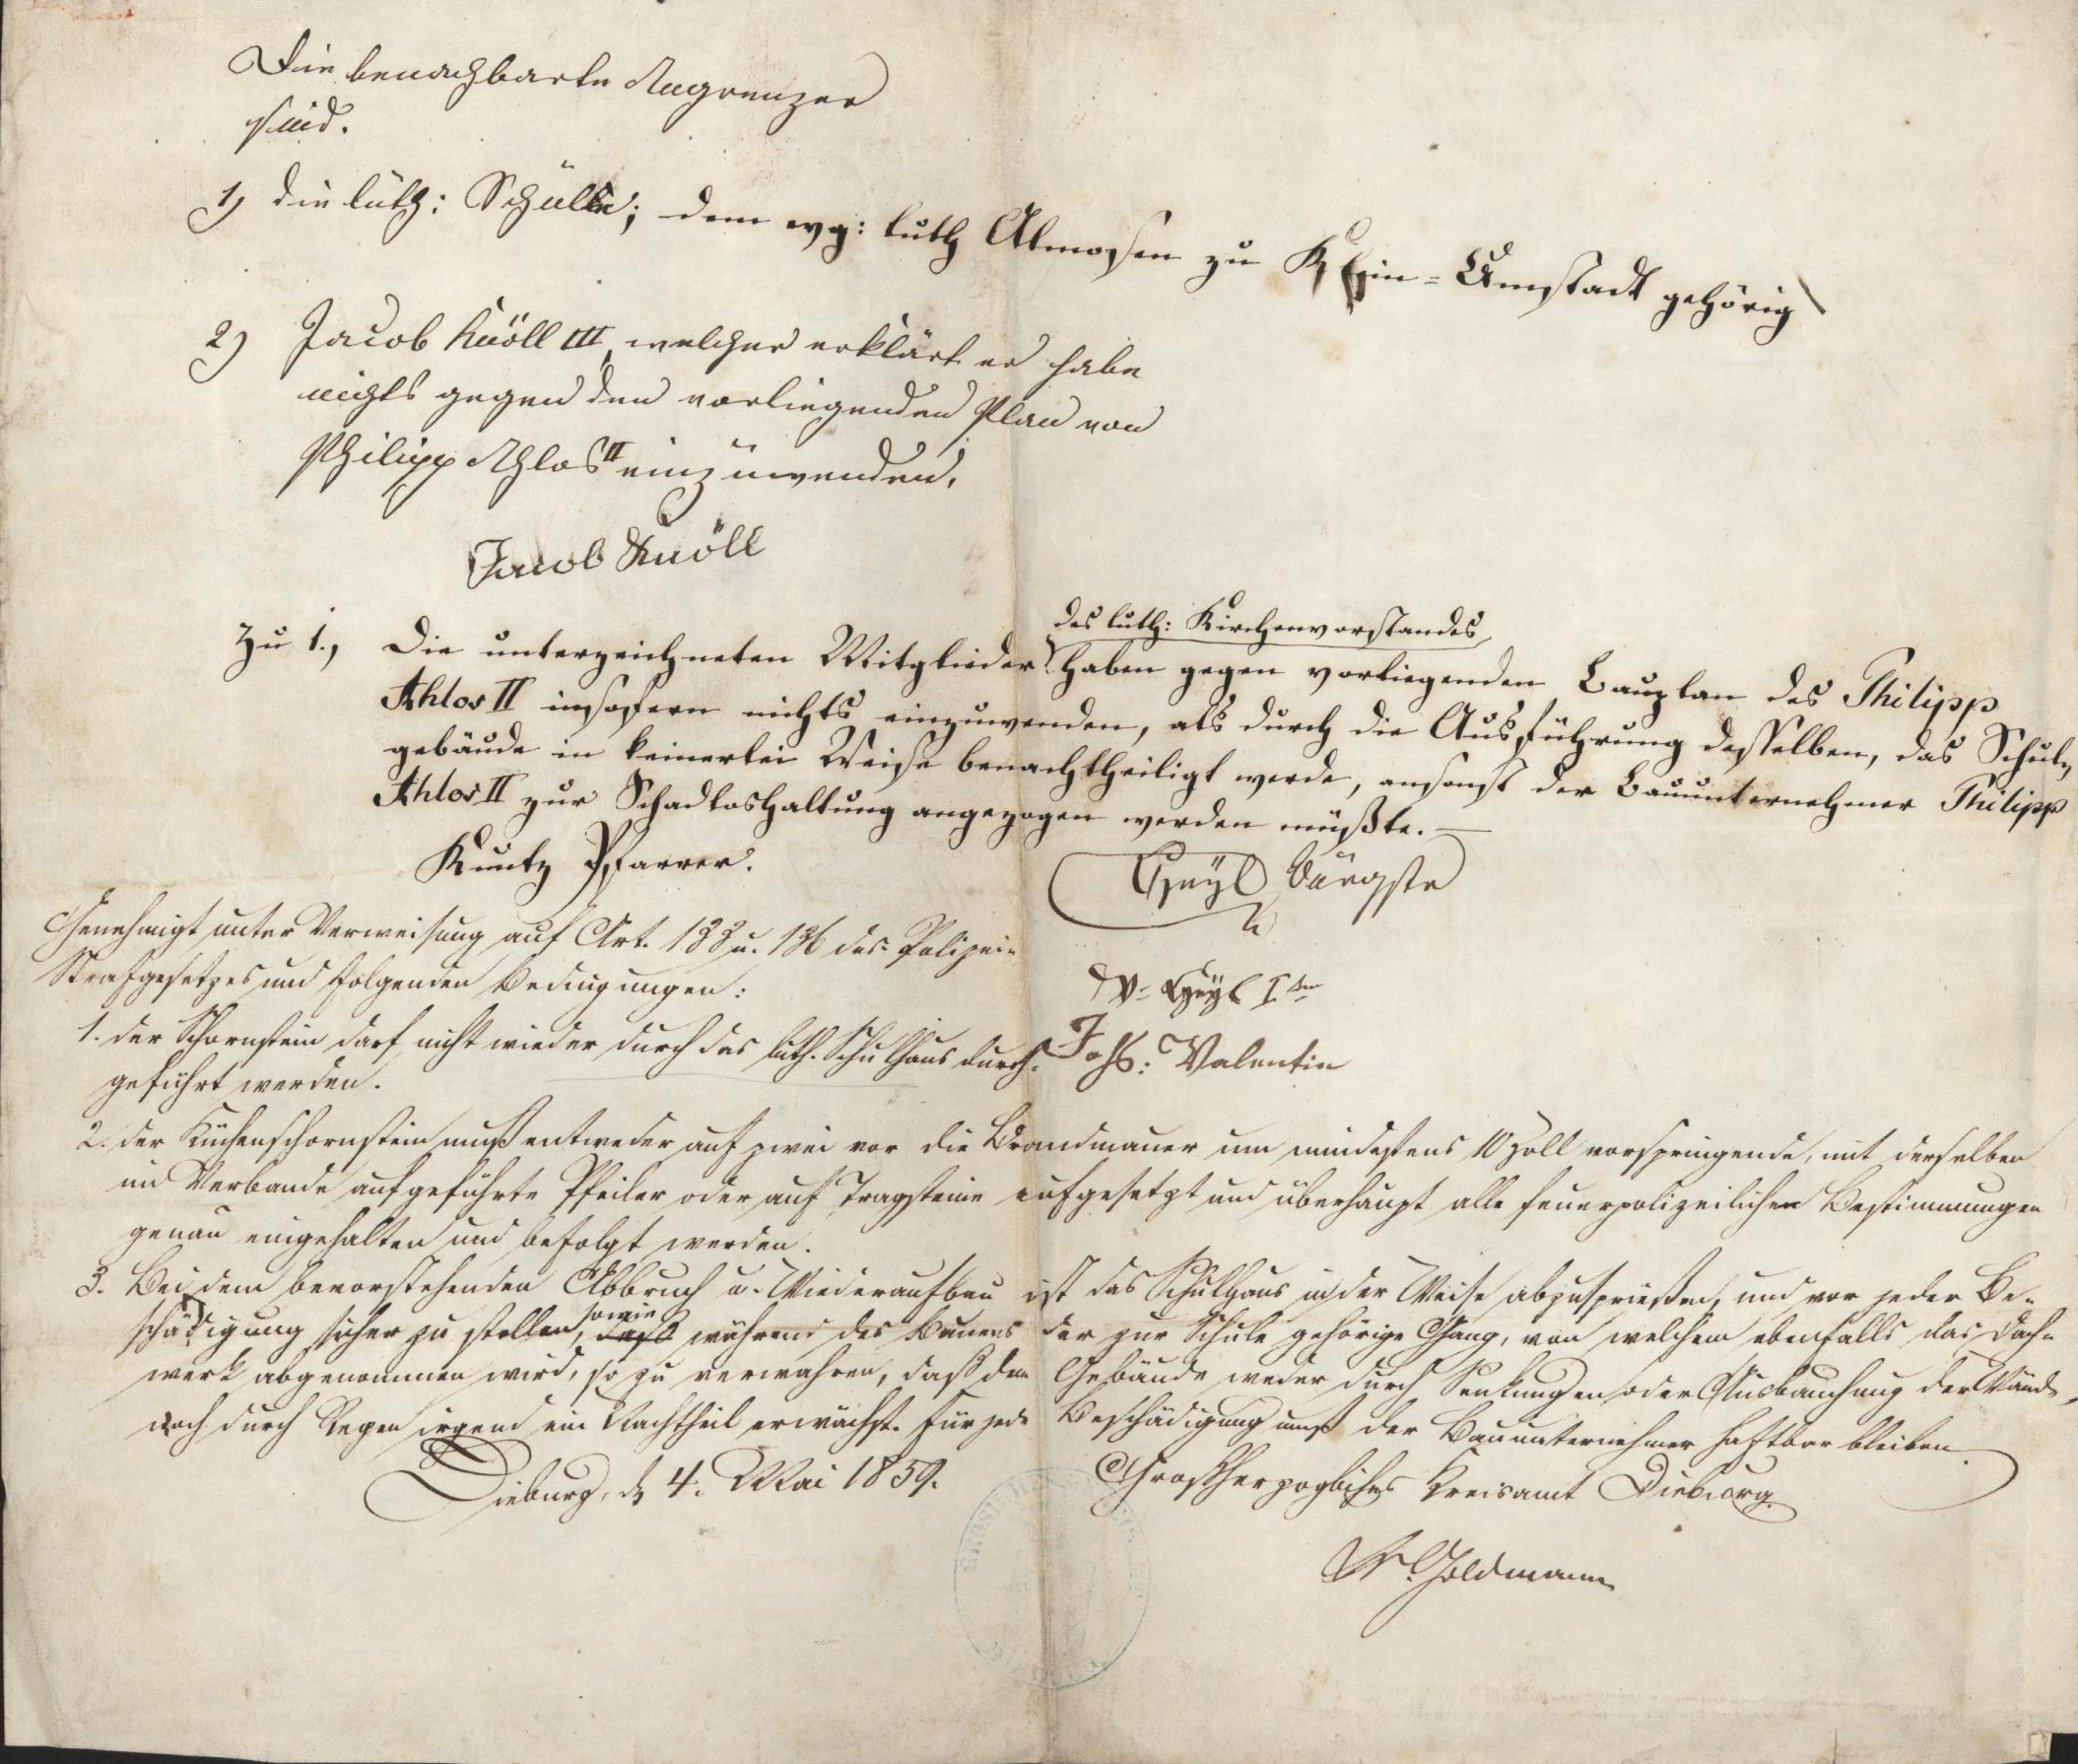 Die benachbarte Angrenzer
sind.
1) die luth: Schulle; dem evg: luth Almosen zu Klein-Umstadt gehörig
2) Jacob Knöll III, welcher erklärt er habe
nichts gegen den vorliegenden Plan von
Philipp Ahlos II einzuwenden.
Jacob Knöll
des luth: Kirchenvorstandes
Zu 1., Die unterzeichneten Mitglieder haben gegen vorliegenden Bauplan des Philipp
Ahlos II insofern nichts einzuwenden, als durch die Ausführung desselben, das Schul-
gebäude in keinerlei Weise benachtheiligt werde, ansonst der Bauunternehmer Philipp
Ahlos II zur Schadloshaltung angezogen werden müßte. —
Kuntz Pfarrer.
Heyl
Genehmigt unter Verweisung auf Art. 133 u. 136 des Polizei-
Strafgesetzes und folgenden Bedingungen:
Heyl I
1. der Schornstein darf nicht wieder durch das luth. Schulhaus durch-
geführt werden.
Johs: Valentin
2. der Küchenschornstein muß entweder auf zwei vor die Brandmauer um mindestens 10 Zoll vorspringende, mit derselben
im Verbande aufgeführte Pfeiler oder auf Tragsteine aufgesetzt und überhaupt alle feuerpolizeilichen Bestimmungen
genau eingehalten und befolgt werden.
3. Bei dem bevorstehenden Abbruch u. Wiederaufbau ist das Schulhaus in der Weise abzusprießen, und vor jeder Be-
schädigung sicher zu stellen, sowie während des Bauens der zur Schule gehörige Gang, von welchem ebenfalls das Dach-
werk abgenommen wird, so zu verwahren, daß dem Gebäude weder durch Senkungen oder Ausbauchung der Wände,
noch durch Regen irgend ein Nachtheil erwächst. Für jede Beschädigung muß der Bauunternehmer haftbar bleiben.
Dieburg, d 4. Mai 1859.
Großherzogliches Kreisamt Dieburg.
Goldmann